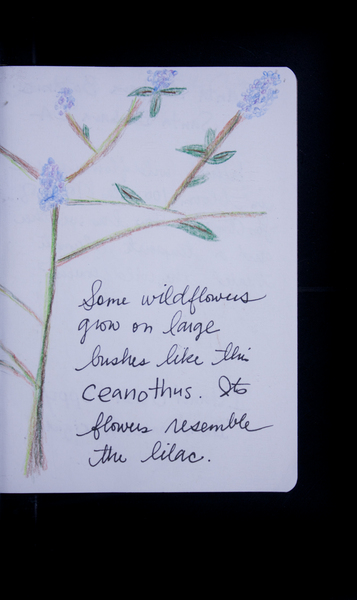 Some wildflowers
grow on large
bushes like this
ceanothus. Its
flowers resemble
the lilac.